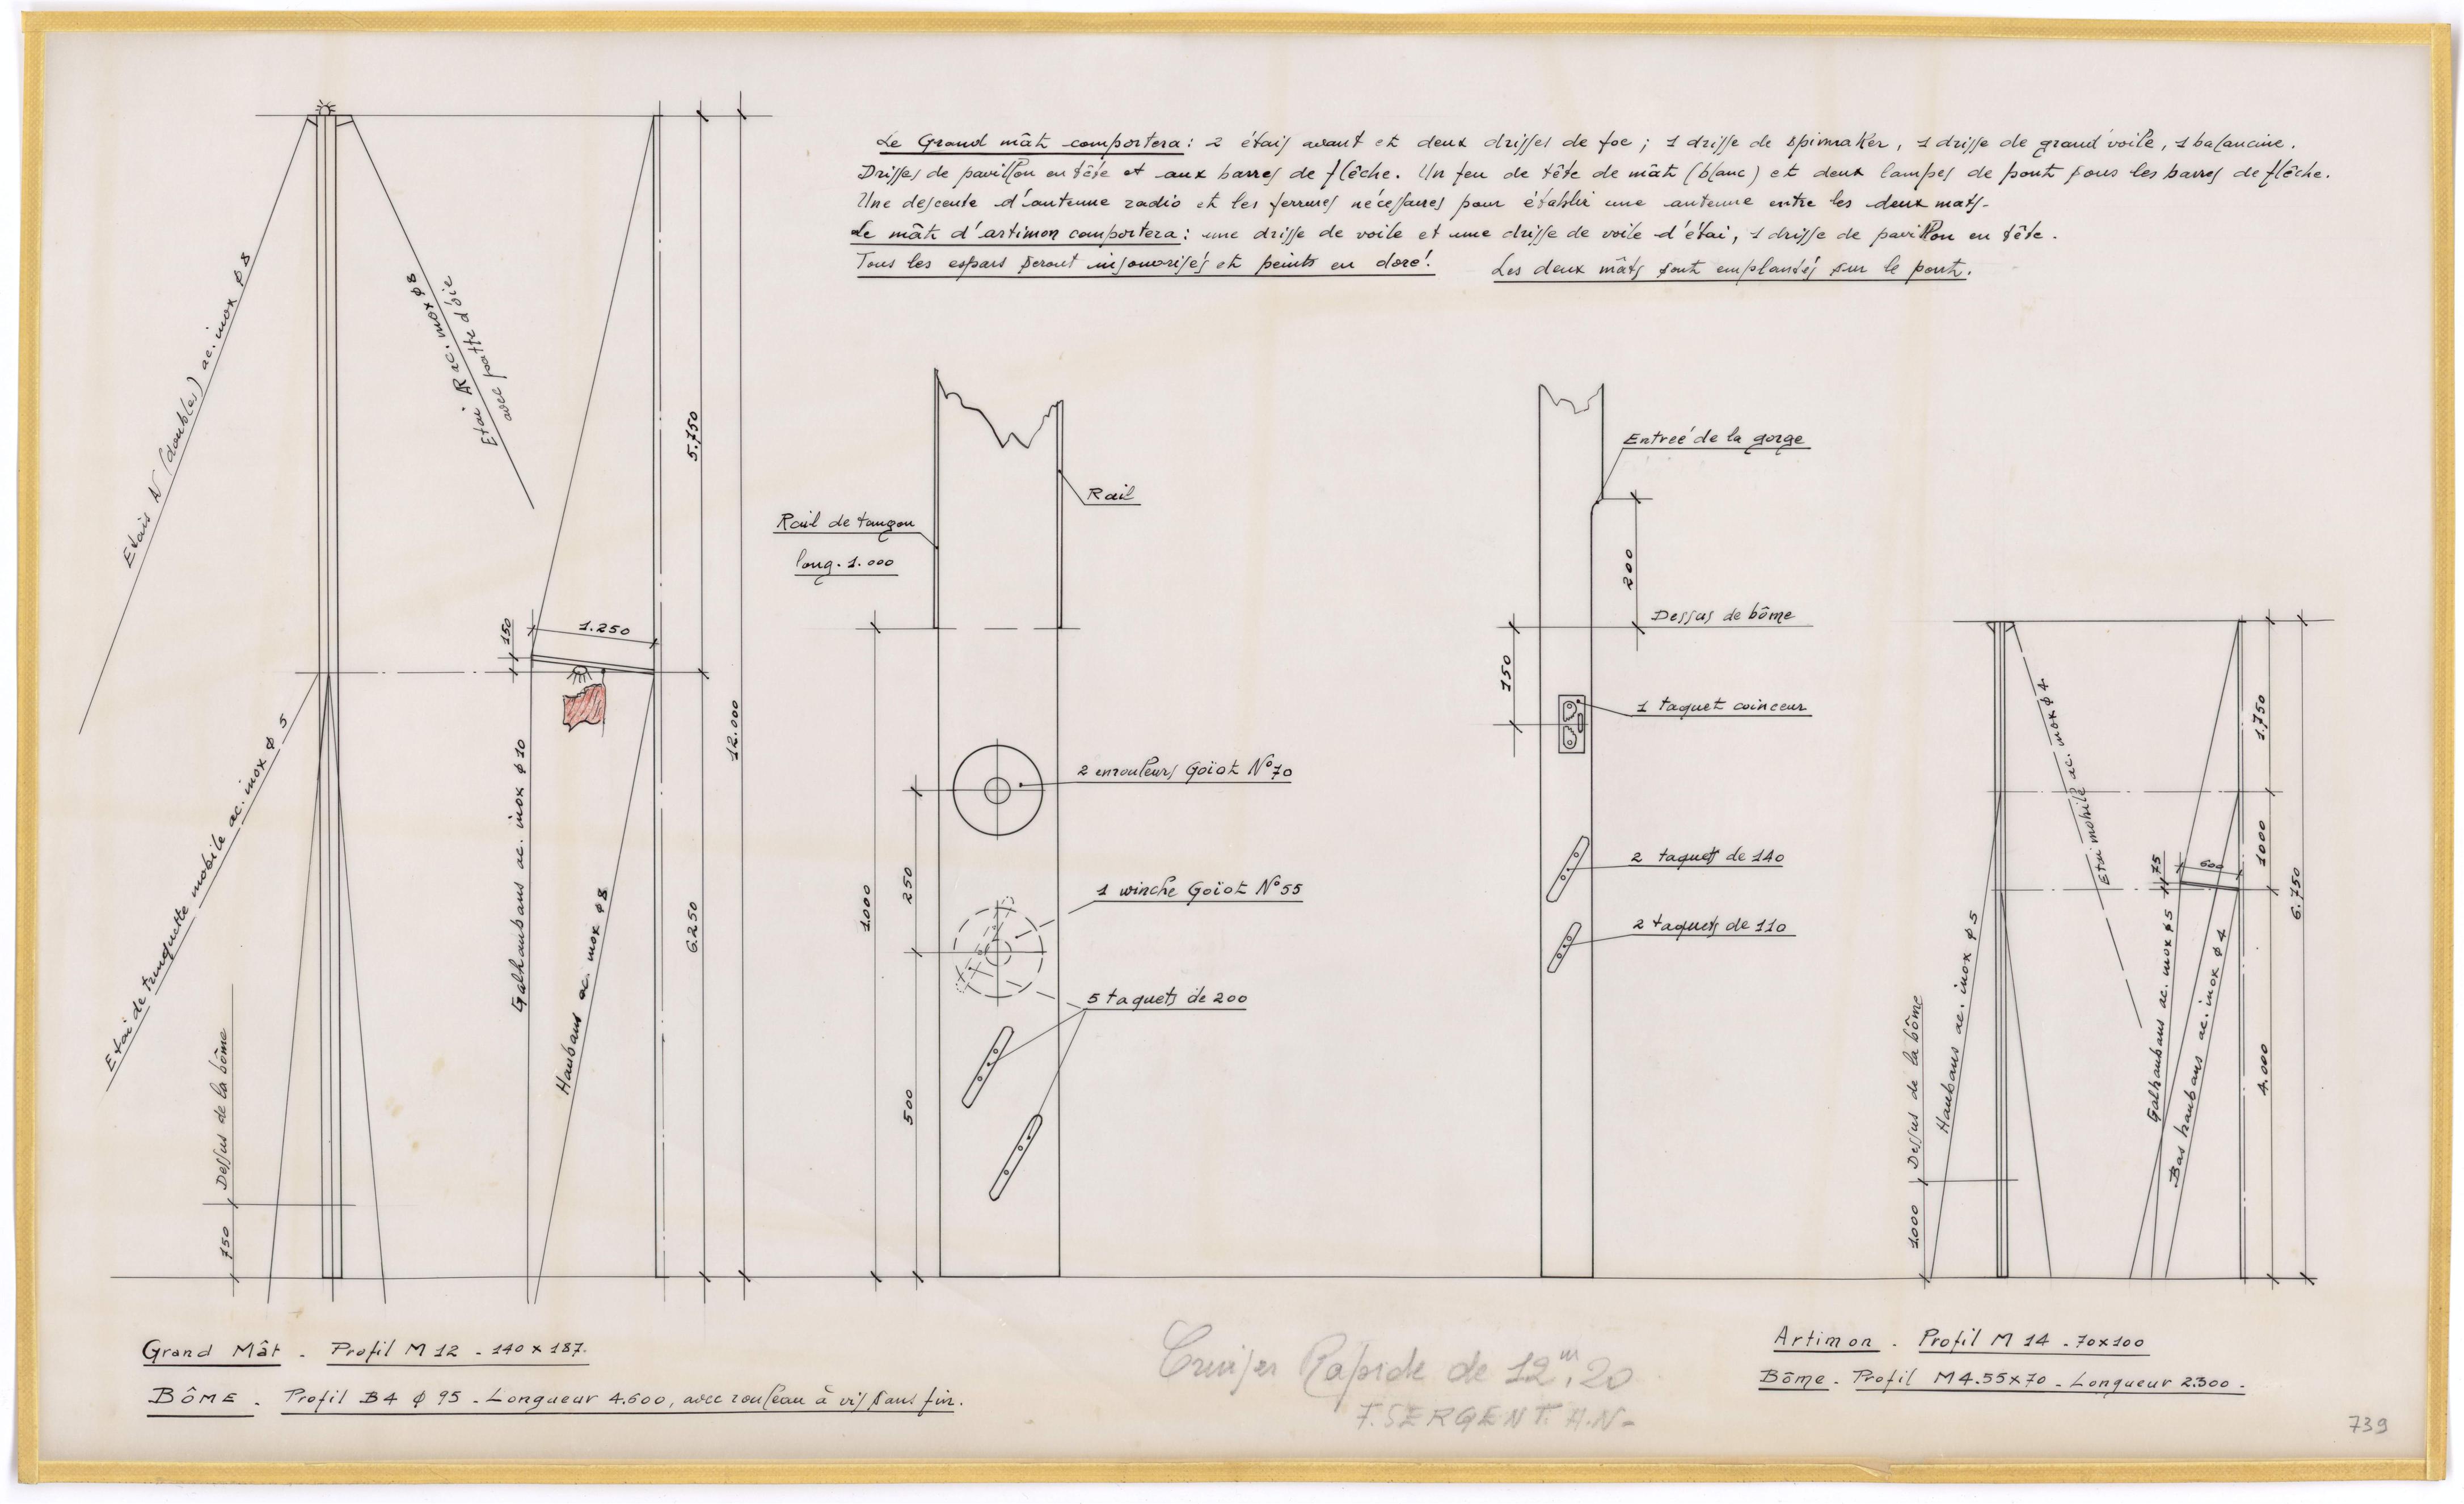 Le Grand mât comportera : 2 étais avant et deux drisses de foc ; 1 drisse de spinnaker, 1 drisse de grand'voile, 1 balancine.
Drisses de pavillon en tête et aux barres de flêche. Un feu de tête de mât (blanc) et deux lampes de pont sous les barres de flêche.
Une descente d'antenne radio et les ferrures nécessaires pour établir une antenne entre les deux mats-
Le mât d'artimon comportera : une drisse de voile et une drisse de voile d'étai, 1 drisse de pavillon en tête.
Tous les espars seront insonorisés et peints en doré! Les deux mâts sont emplantés sur le pont.
Etais AV (doubles) ac. inox ϕ 8
Etai AR ac. inox ϕ 8
avec patte d'oie
5.750
12.000
150
1.250
Etai de trinquette mobile ac. inox ϕ 5
Galhaubans ac. inox ϕ 10
Haubans ac. inox ϕ 8
6.250
Dessus de la bôme
750
Rail de tangon
long. 1.000
Rail
2 enrouleurs Goïot N°70
1 winche Goïot N°55
5 taquets de 200
1000
250
500
Entreé de la gorge
200
Dessus de bôme
150
1 taquet coinceur
2 taquets de 140
2 taquets de 110
Etai mobile ac. inox ϕ 4
1.750
1000
6.750
75
600
Haubans ac. inox ϕ 5
Galhaubans ac. inox ϕ 5
Bas haubans ac. inox ϕ 4
4.000
Dessus de la bôme
1000
Grand Mât . Profil M 12 - 140 x 187.
BÔME . Profil B4 ϕ 95 - Longueur 4.600, avec rouleau à vis sans fin.
Cruiser Rapide de 12m,20
F. SERGENT. A.N-
Artimon . Profil M 14 - 70x100
Bôme . Profil M4.55x70 - Longueur 2.300 .
739